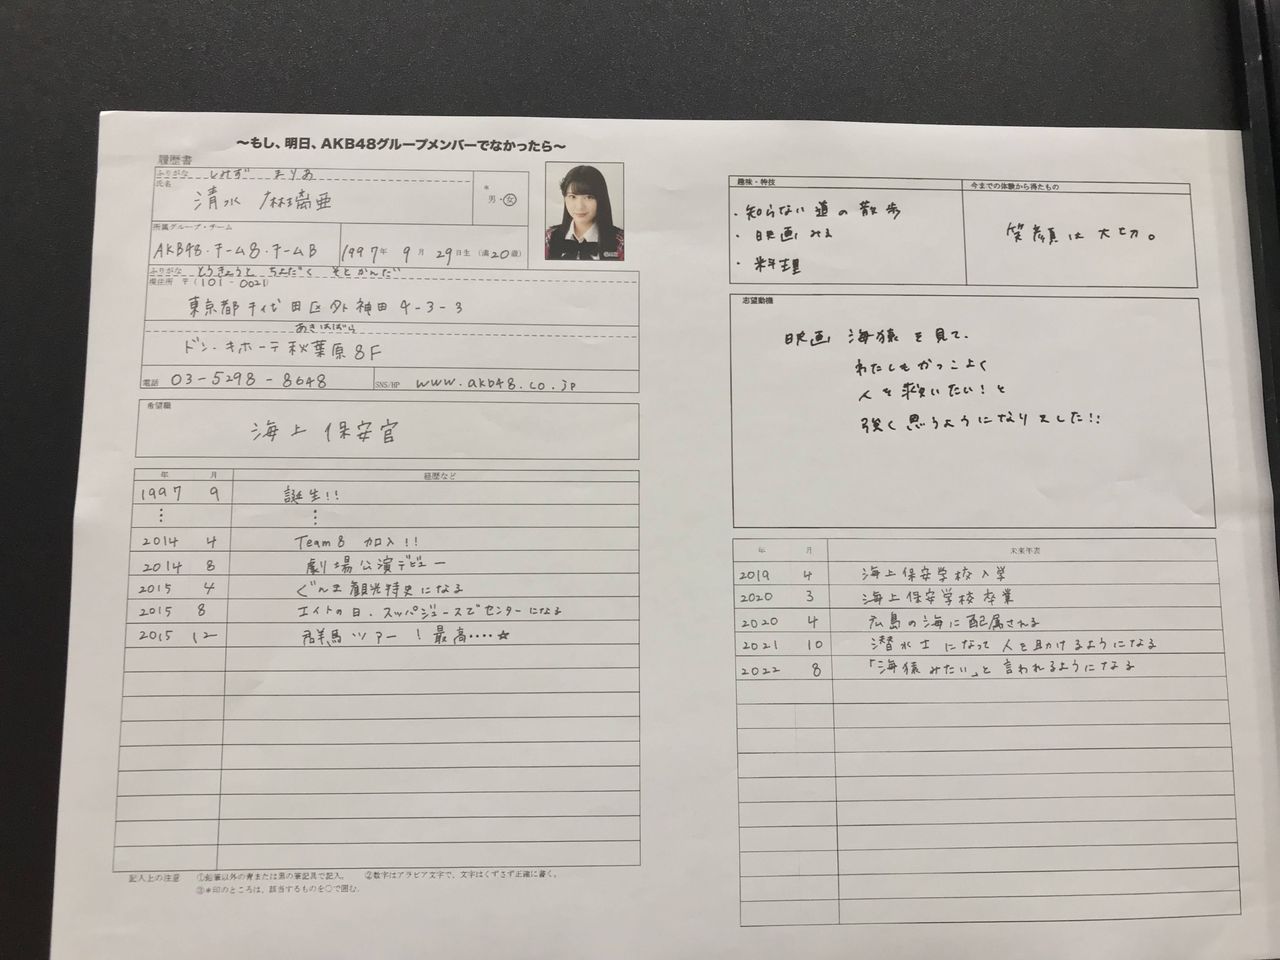 〜もし、明日、AKB48グループメンバーでなかったら〜
履歴書
ふりがな しみず まりあ
氏名
清水 麻璃亜
* 男・女
所属グループ・チーム
AKB48・チーム8・チームB
1997年 9月 29日生 (満20歳)
ふりがな とうきょうと ちよだく そとかんだ
現住所 〒(101-0021)
東京都千代田区外神田4-3-3
あきはばら
ドン・キホーテ秋葉原8F
電話 03-5298-8648
SNS/HP www.akb48.co.jp
希望職
海上保安官
年 月 経歴など
1997 9 誕生!!
⋮ ⋮
2014 4 Team8 加入!!
2014 8 劇場公演デビュー
2015 4 ぐんま観光特使になる
2015 8 エイトの日、スッパジュースでセンターになる
2015 12 群馬ツアー!最高‥‥☆
記入上の注意 ①鉛筆以外の青または黒の筆記具で記入。 ②数字はアラビア文字で、文字はくずさず正確に書く。
③*印のところは、該当するものを○で囲む。
趣味・特技
・知らない道の散歩
・映画みる
・料理
今までの体験から得たもの
笑顔は大切。
志望動機
映画 海猿を見て、
わたしもかっこよく
人を救いたい!と
強く思うようになりました!!
年 月 未来年表
2019 4 海上保安学校入学
2020 3 海上保安学校卒業
2020 4 広島の海に配属される
2021 10 潜水士になって人を助けるようになる
2022 8 「海猿みたい」と言われるようになる